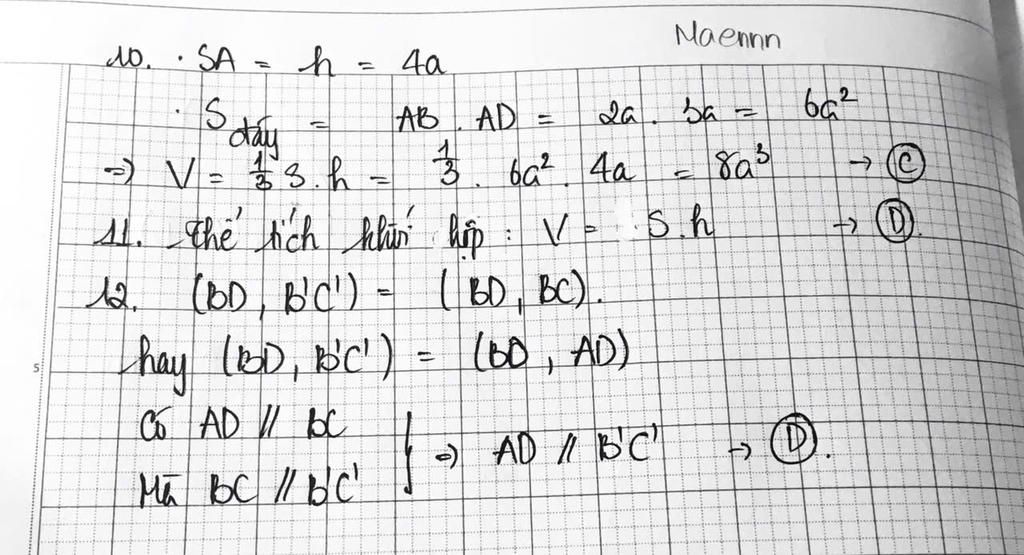 Maennn
10. · SA = h = 4a
· S đáy = AB . AD = 2a . 3a = 6a²
=> V = 1/3 S . h = 1/3 . 6a² . 4a = 8a³ → C
11. Thể tích khối hộp : V = S.h → D
12. (BD, B'C') = (BD, BC).
hay (BD, B'C') = (BD, AD)
5
Có AD // BC
Mà BC // B'C' } => AD // B'C' → D.